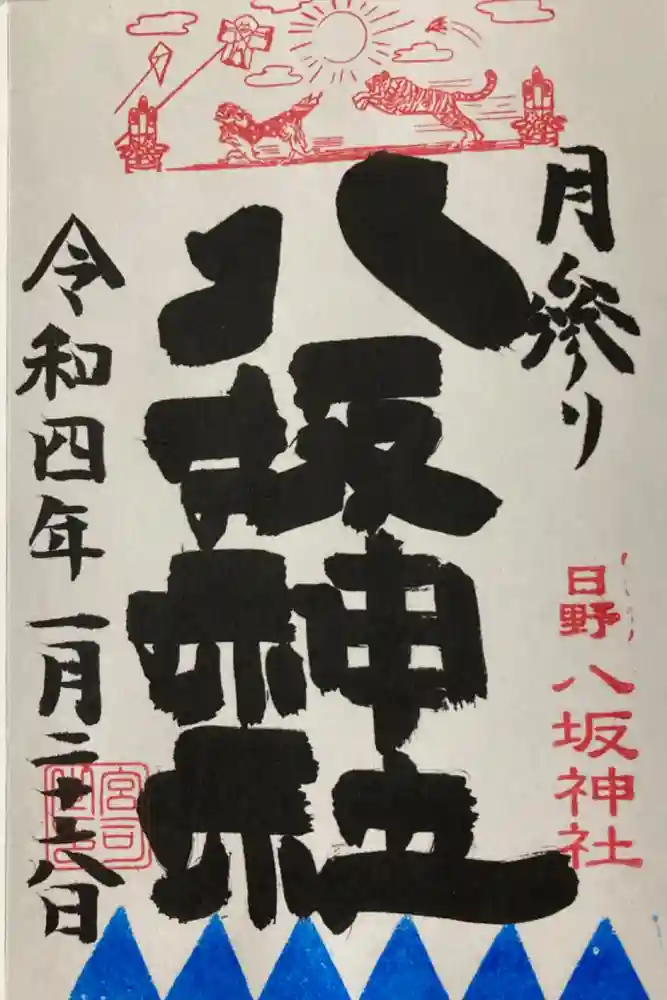 月参り
日野
八坂神社
八坂神社
令和四年一月二十六日
宮司